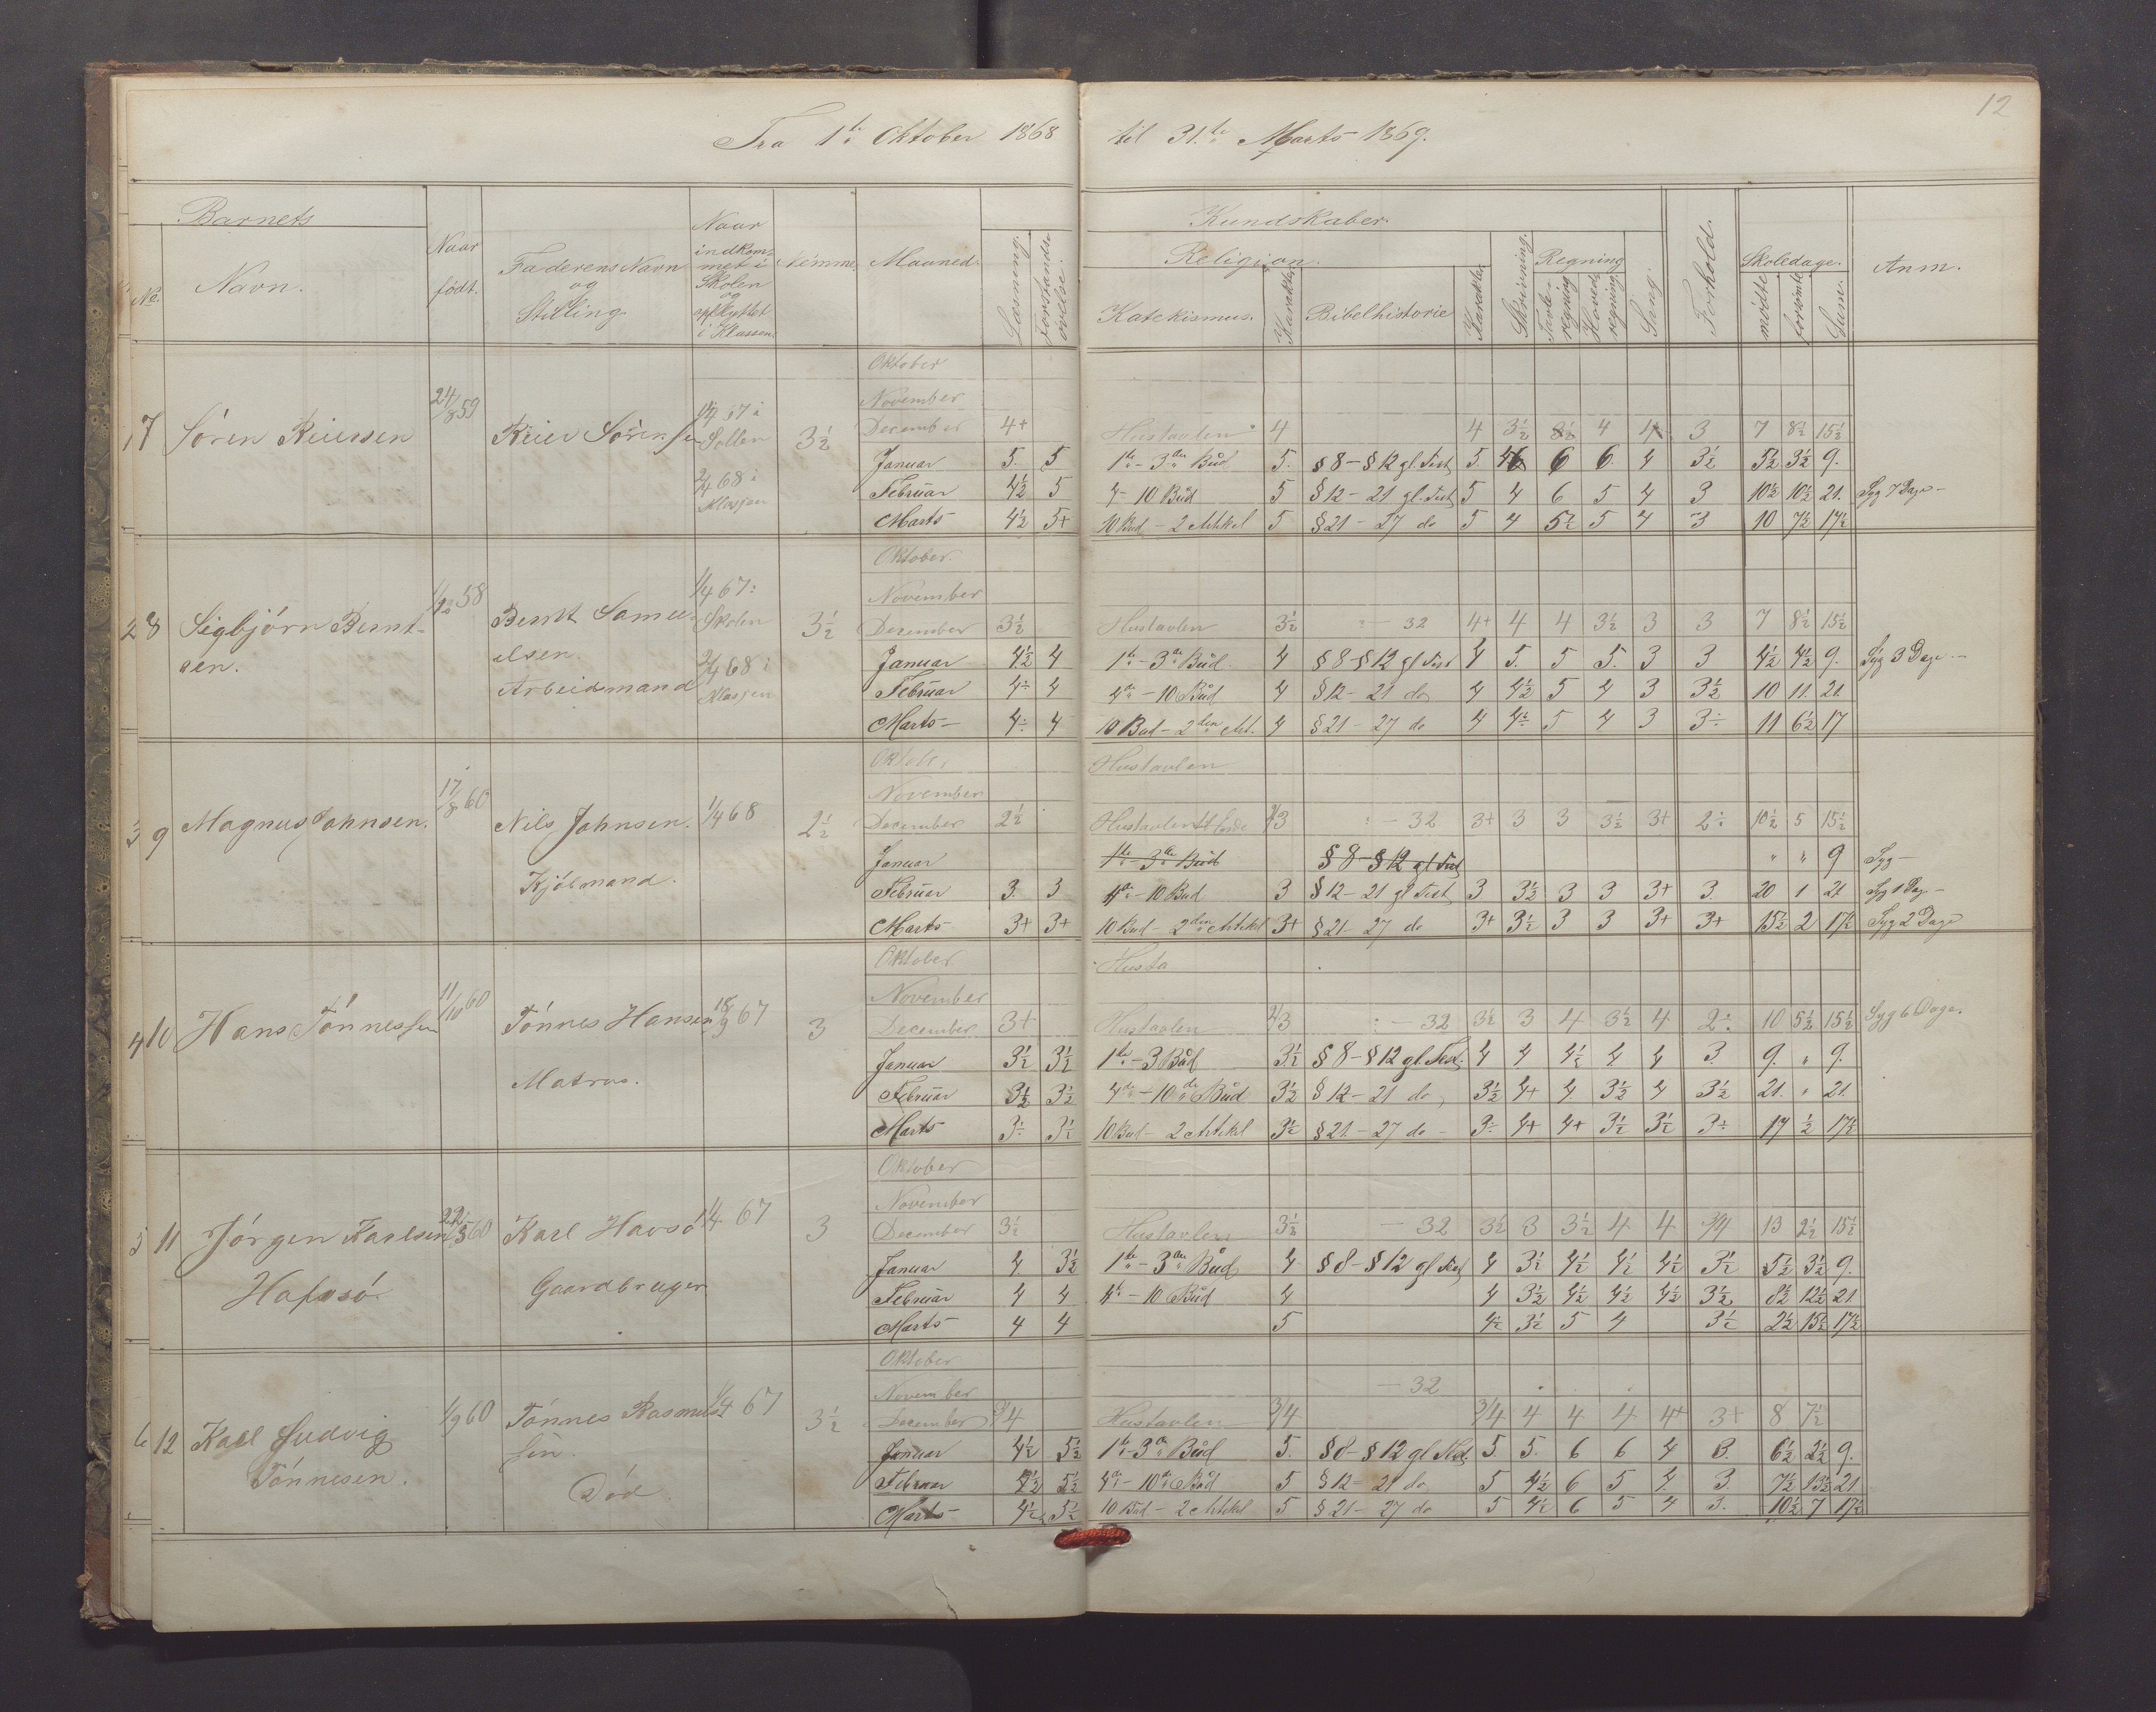 12
Fra 1ste Oktober 1868 til 31.te Marts 1869.
Barnets
No. Navn. Naar født. Faderens Navn og Stilling. Naar indkommet i Skolen og opflyttet i Klassen. Nemme. Maaned. Læsning. Forstandsøvelse.
Kundskaber.
Religion. Katekismus. Karakter. Bibelhistorie Karakter. Skrivning. Regning Tavleregning Hovedregning. Sang. Forhold. Skoledage. mødte forsømte Sum. Anm.
Oktober
November
17 Søren Reiersen 24/8 59 Reier Sørensen 1/4 67 i 3½ December 4+ Hustavlen 4 4 3½ 4 3 7 8½ 15½
Januar 5. 5 1ste - 3die Bud 5. § 8 - § 12 gl. Test 5. 6 6. 4 3½ 5½ 3½ 9.
2/4 68 i Klassen
Februar 4½ 5 4 - 10 Bud 5 § 12 - 21 gl. Test 5 4 6 5 4 3 10½ 10½ 21. Syg 7 Dage -
Marts 4½ 5+ 10 Bud - 2 Artikel 5 § 21 - 27 do 5 4 5½ 5 4 3 10 7½ 17½
Oktober.
November
28 Sigbjørn Bernt- 58 Bernt Samu- 1/4 67 i Skolen 3½ December 3½ Hustavlen 3½ - 32 4+ 4 4 3½ 3 3 7 8½ 15½
sen. elsen. 2/4 68 i Januar 4½ 4 1ste - 3die Bud 4 § 8 - § 12 gl Test 4 5. 5 5. 3 3 4½ 4½ 9. Syg 3 Dage -
Arbeidsmand Klassen Februar 4÷ 4 4de - 10 Bud 4 § 12 - 21 do 4 4½ 5 4 3 3½ 10 11. 21.
Marts - 4÷ 4 10 Bud - 2den Art. 4 § 21 - 27 do 4 4÷ 5 4 3 3÷ 11 6½ 17
Oktober Hustavlen
November
9 Magnus Johnsen. 17/8 60 Nils Johnsen. 1/4 68 2½ December 2½ Hustavlen - 32 3+ 3 3 3½ 3+ 2÷ 10½ 5 15½
Kjøbmand. Januar 1ste - 3die Bud § 8 - § 12 gl Test " " 9 Syg -
Februar 3. 3 4de - 10 Bud 3 § 12 - 21 gl Test 3 3½ 3 3 3+ 3. 20 1 21 Syg 1 Dag -
Marts 3+ 3+ 10 Bud - 2den Artikel 3+ § 21 - 27 do 3+ 3½ 3 3 3+ 3+ 15½ 2 17½ Syg 2 Dage
Oktober Husta
November
4 10 Hans Tønnessen 11/10 60 Tønnes Hansen 18/9 67 3 December 3+ Hustavlen 2/3 - 32 3½ 3 4 3½ 4 2÷ 10 5½ 15½ Syg 6 Dage.
Matros. Januar 3½ 3½ 1ste - 3 Bud 3½ § 8 - § 12 gl. Test. 4 4 4½ 4. 4 3. 9. " 9.
Februar 3½ 3½ 4de - 10de Bud 3½ § 12 - 21 do, 3½ 4+ 4. 3½ 4 3½ 21. " 21.
Marts 3÷ 3½ 10 Bud - 2 Artikel 3½ § 21. - 27 do - 3÷ 4+ 4+ 3½ 3½ 3÷ 17 ½ 17½
Oktober
November
5 11 Jørgen Karlsen 22/5 60 Karl Havsø 1/4 67 3 December 3½ Hustavlen 3½ - 32 3½ 3 3½ 4 4 3/4 13 2½ 15½
Hafsø Gaardbruger Januar 4 3½ 1ste - 3die Bud 4 § 8 - § 12 gl Test 4 3½ 4½ 4½ 4½ 3½ 5½ 3½ 9.
Februar 4 4 4de - 10 Bud 4 4 3½ 4½ 4½ 4½ 3½ 8½ 12½ 21
Marts 4 4 5 4½ 3½ 5 4 3½ 2½ 15½ 17½
Oktober
November - 32
6 12 Karl Ludvig 1/9 60 Tønnes Rasmus- 1/4 67 3½ December 3/4 Hustavlen 3/4 3/4 4 4 4 4+ 3+ 8 7½
Tønnesen. sen. Januar 4½ 5½ 1ste - 3die Bud 5. § 8 - § 12 gl Test. 5 5. 6 6 4 3. 6½ 2½ 9.
Død. Februar 4½ 5½ 4de - 10de Bud 5 § 12 - 21 do 5 4½ 6 5 4. 3. 7½ 13½ 21
Marts - 4½ 5½ 10 Bud - 2 Artikel 5 § 21 - 27 do 5 4½ 6 5 4 3. 10½ 7 17½